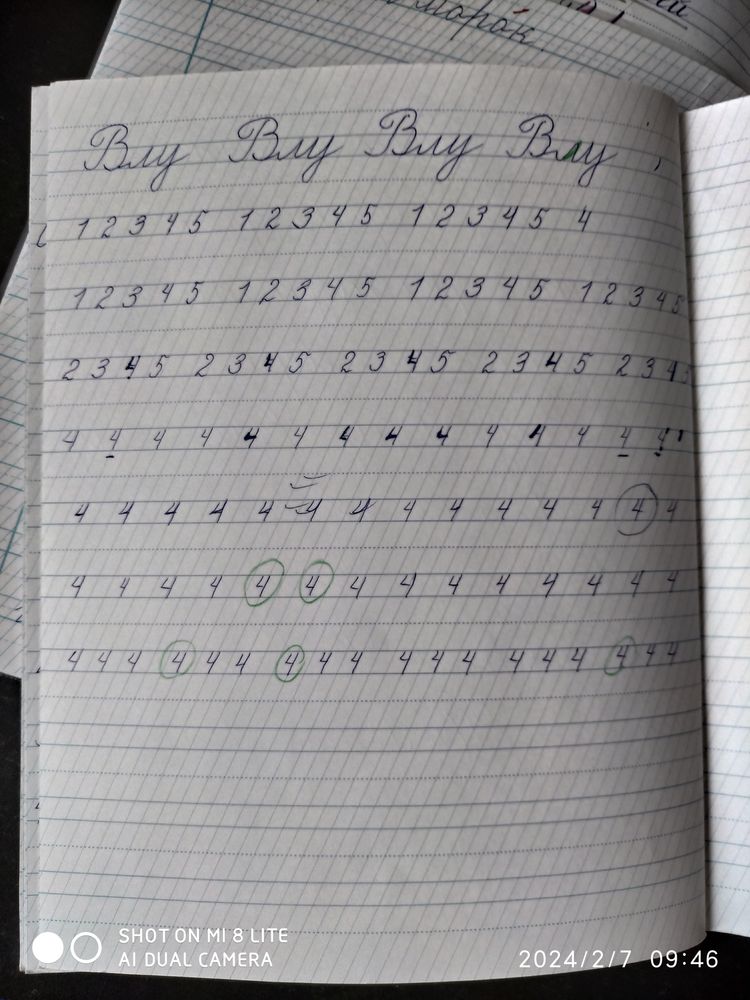 морок.
Влу Влу Влу Влу
1 2 3 4 5 1 2 3 4 5 1 2 3 4 5 4
1 2 3 4 5 1 2 3 4 5 1 2 3 4 5 1 2 3 4 5
2 3 4 5 2 3 4 5 2 3 4 5 2 3 4 5 2 3 4 5
4 4 4 4 4 4 4 4 4 4 4 4 4 4
4 4 4 4 4 4 4 4 4 4 4 4 4 4
4 4 4 4 4 4 4 4 4 4 4 4 4 4
4 4 4 4 4 4 4 4 4 4 4 4 4 4 4 4 4 4
SHOT ON MI 8 LITE
AI DUAL CAMERA
2024/2/7 09:46